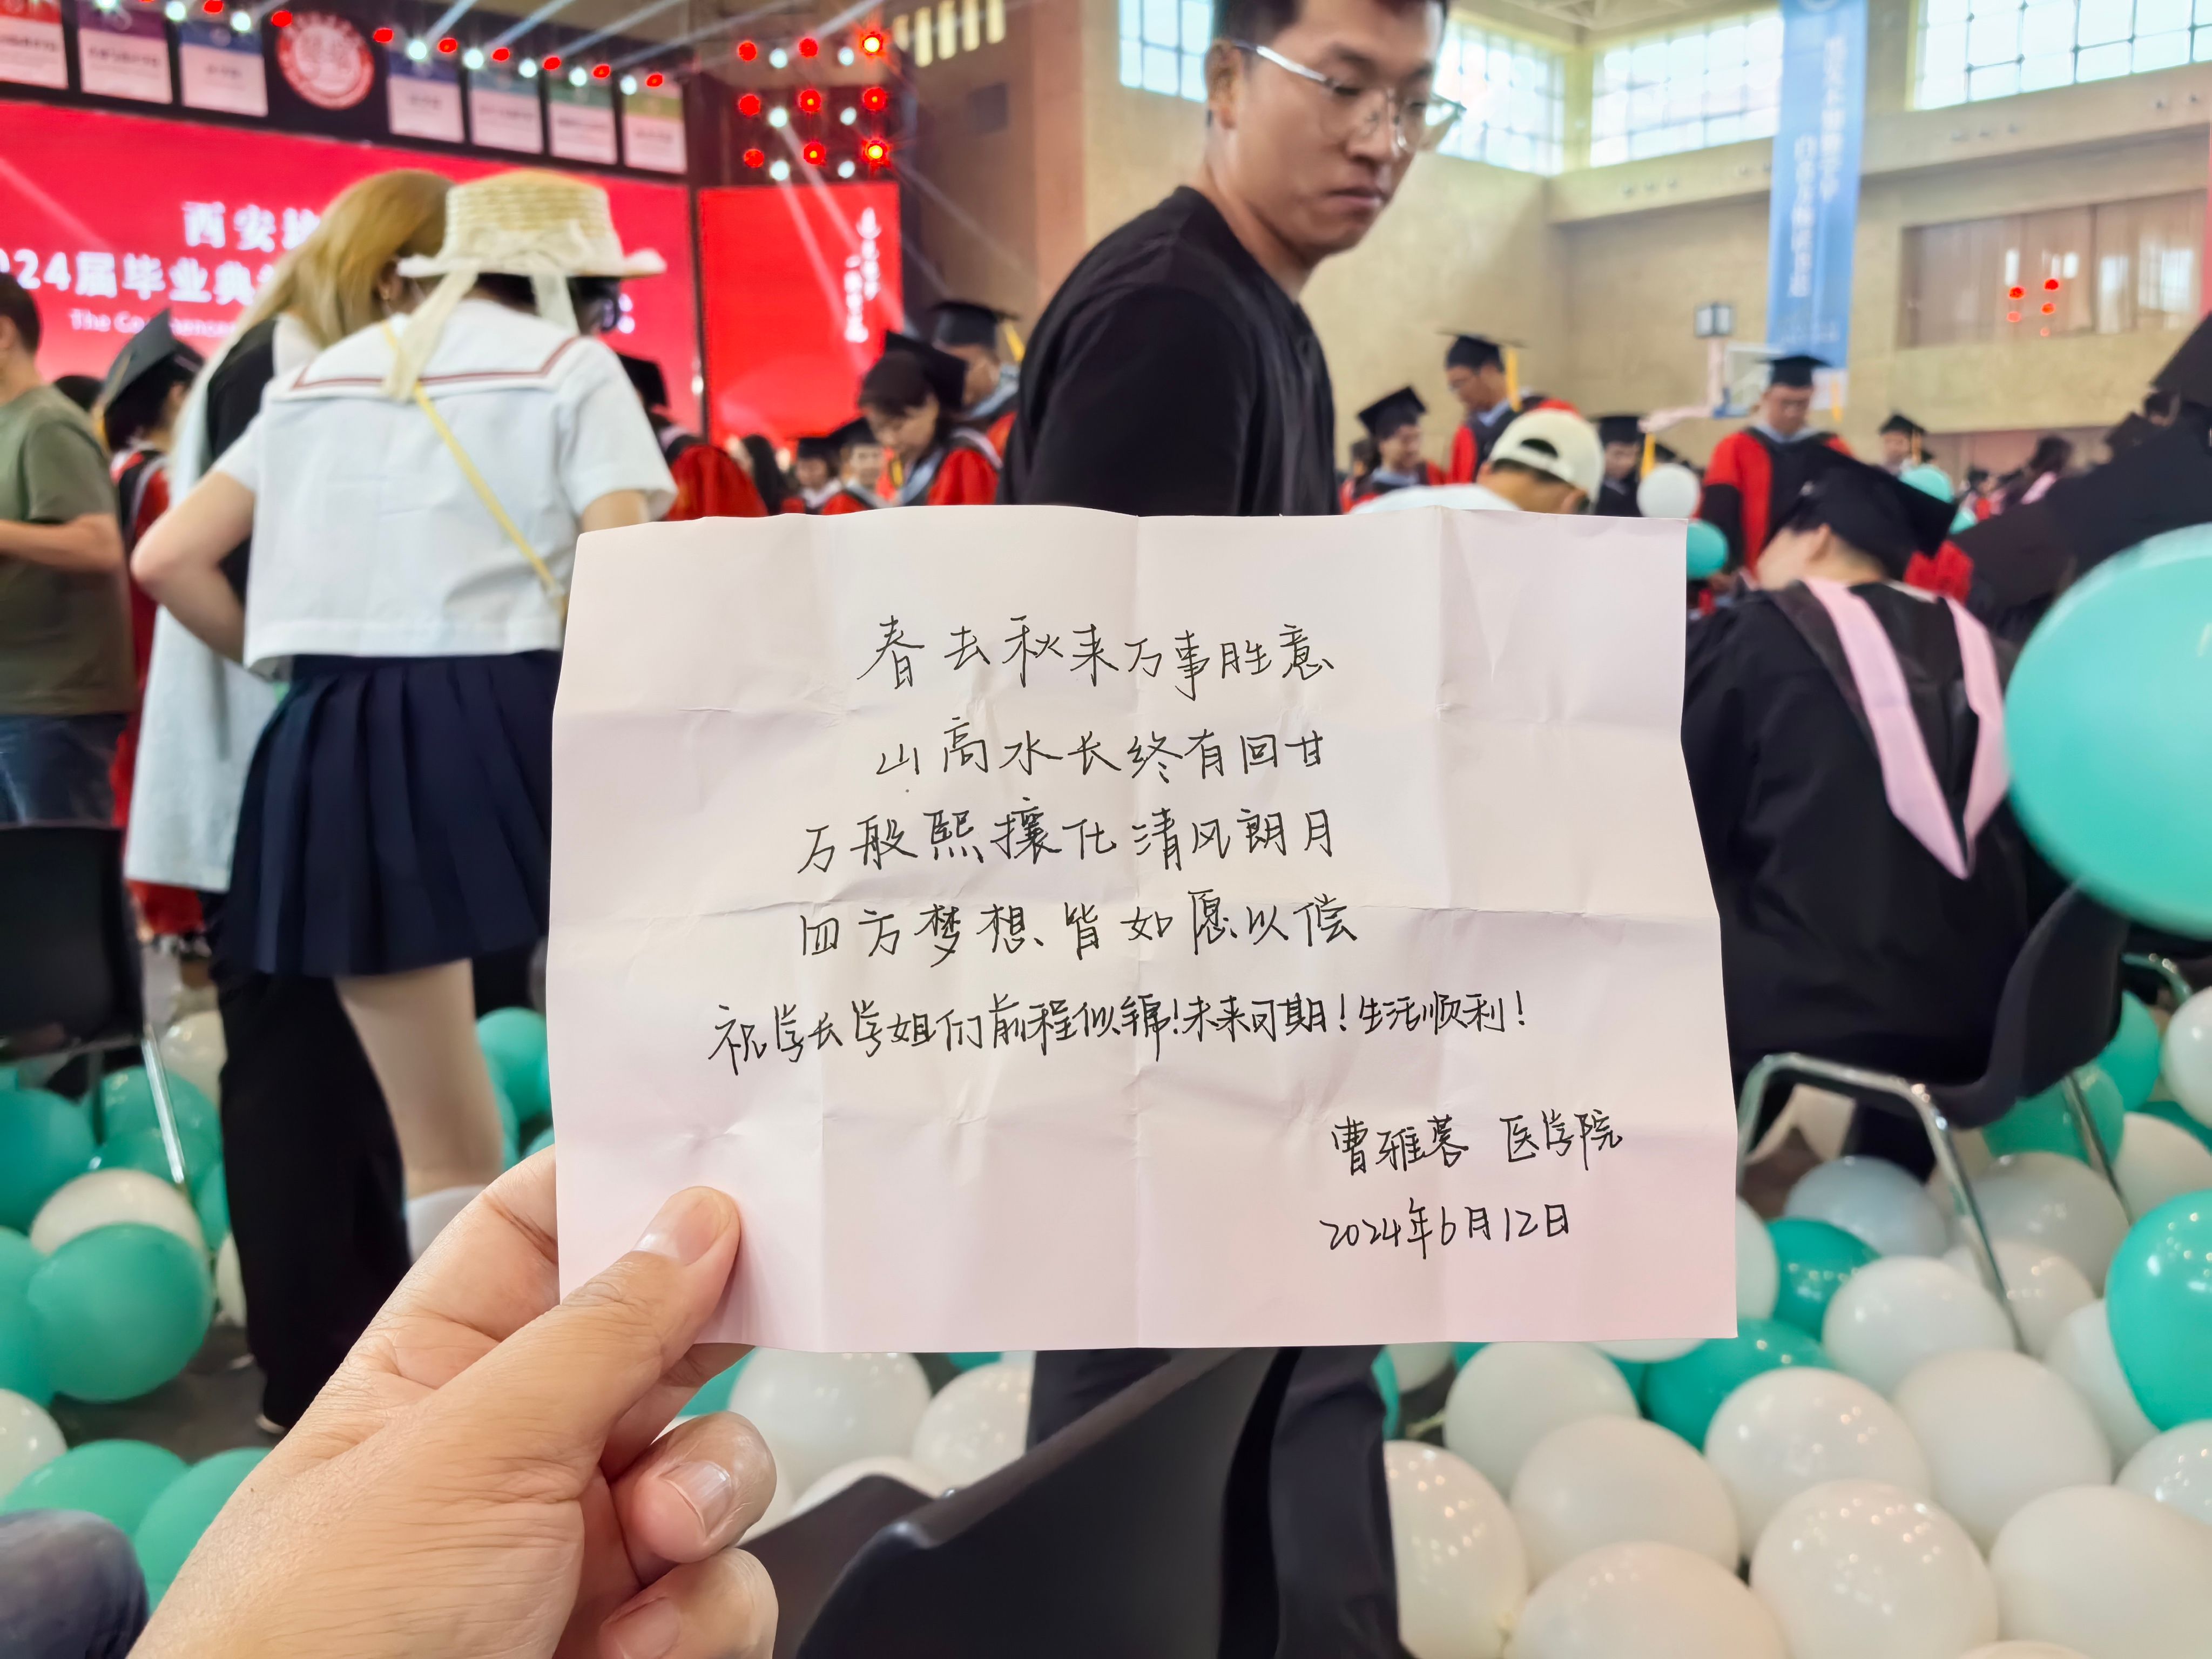 西安
2024届毕业典
The Co
春去秋来万事胜意
山高水长终有回甘
万般熙攘化清风朗月
四方梦想皆如愿以偿
祝学长学姐们前程似锦!未来可期!生活顺利!
曹雅蓉 医学院
2024年6月12日